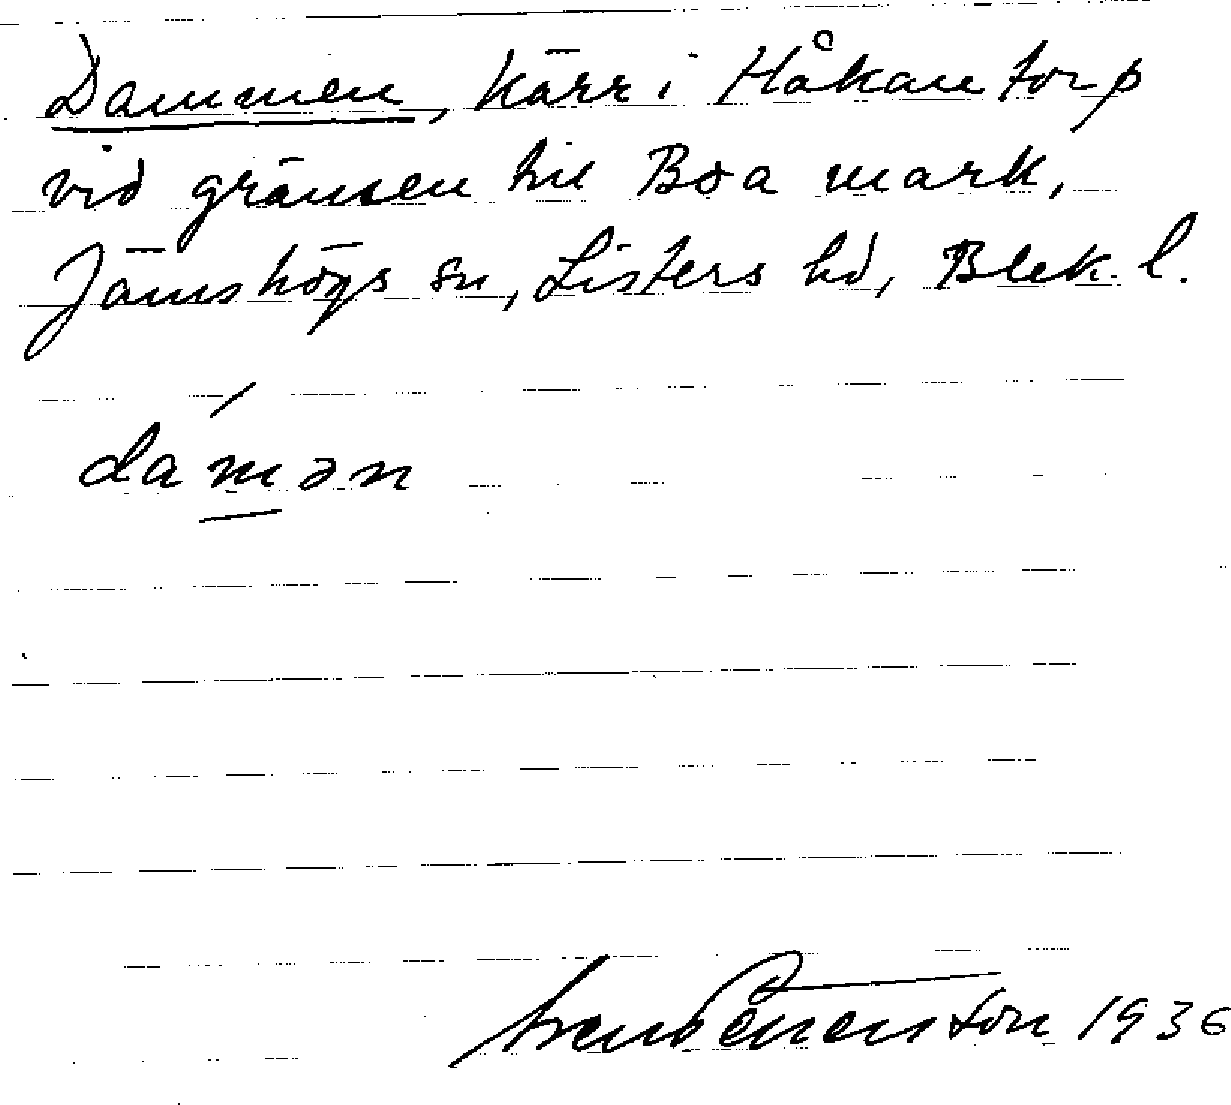 Dammen, kärr i Håkantorp
vid gränsen til Boa mark,
Jämshögs sn, Listers hd, Blek. l.
damən
1936